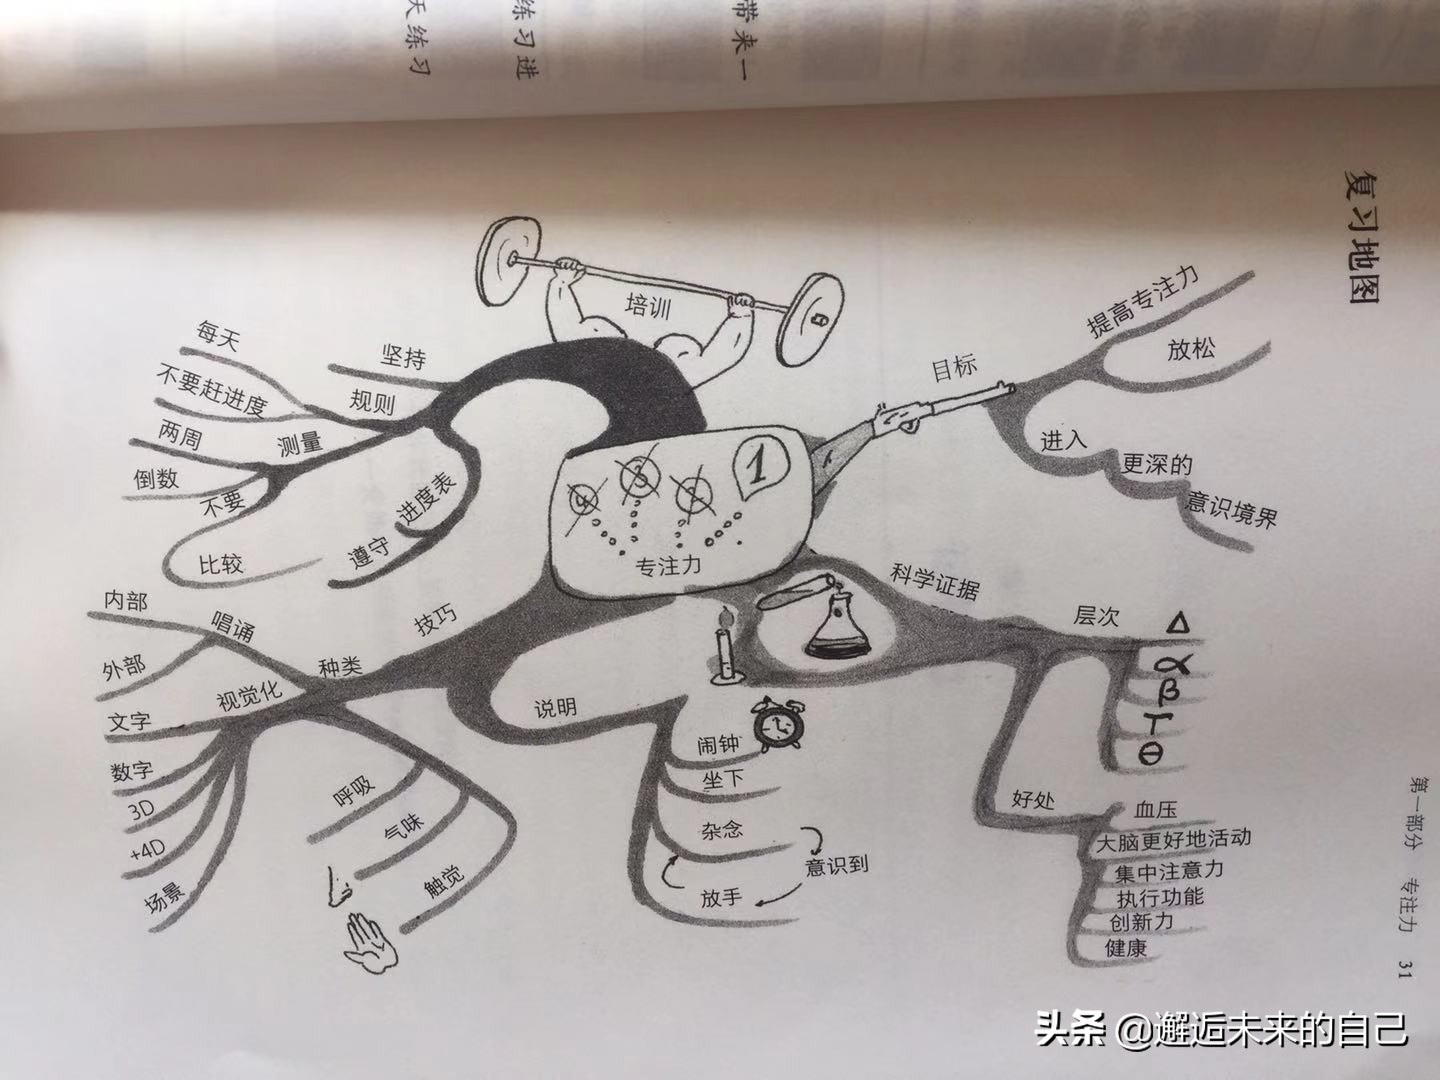 天练习
练习进
带来一
复习地图
培训
坚持
规则
每天
不要赶进度
测量
两周
倒数
不要
比较
进度表
遵守
目标
提高专注力
放松
进入
更深的
意识境界
4
3
2
1
专注力
科学证据
层次
Δ
α
β
Γ
Θ
好处
血压
大脑更好地活动
集中注意力
执行功能
创新力
健康
技巧
种类
唱诵
内部
外部
视觉化
文字
数字
3D
+4D
场景
呼吸
气味
触觉
说明
闹钟
坐下
杂念
意识到
放手
第一部分 专注力 31
头条 @邂逅未来的自己